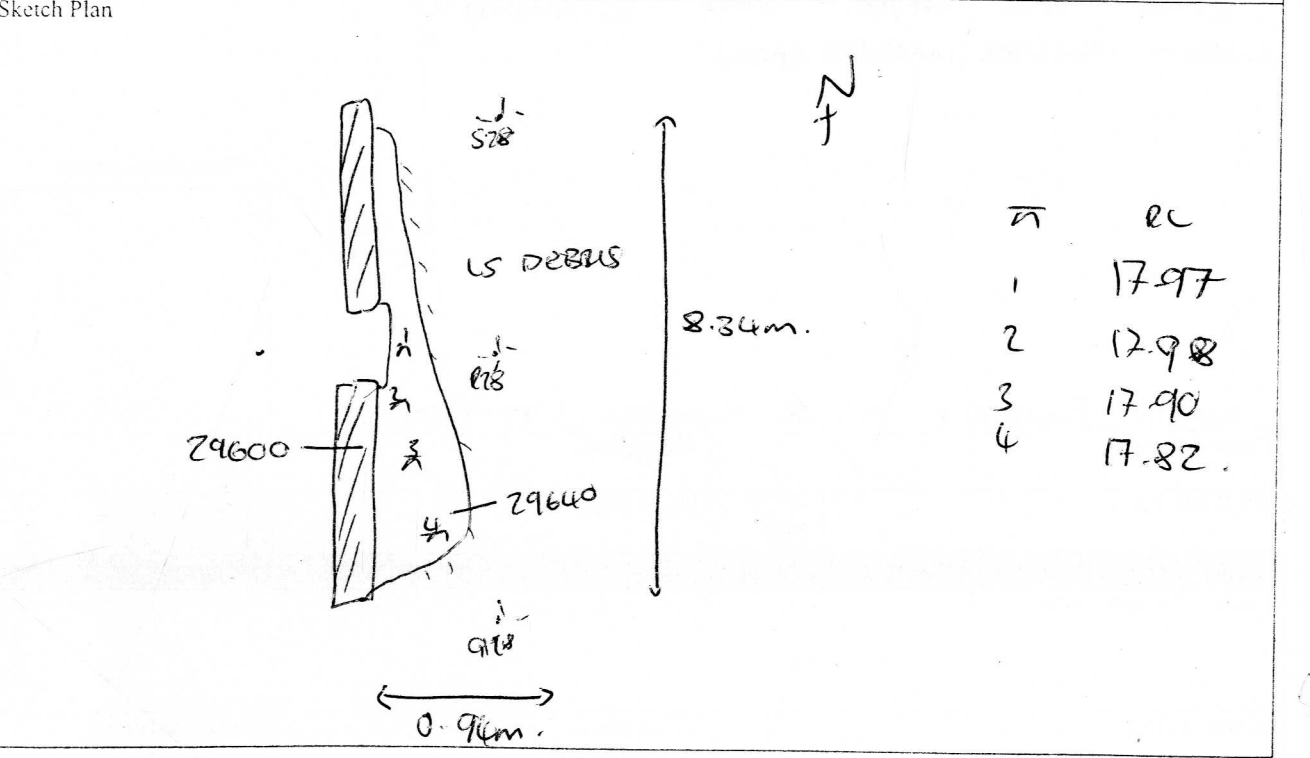 Sketch Plan
N
S28
LS DEBRIS
8.34m.
R28
29600
29640
Q28
0.94m.
1
2
3
4
RL
1 17.97
2 17.98
3 17.90
4 17.82.